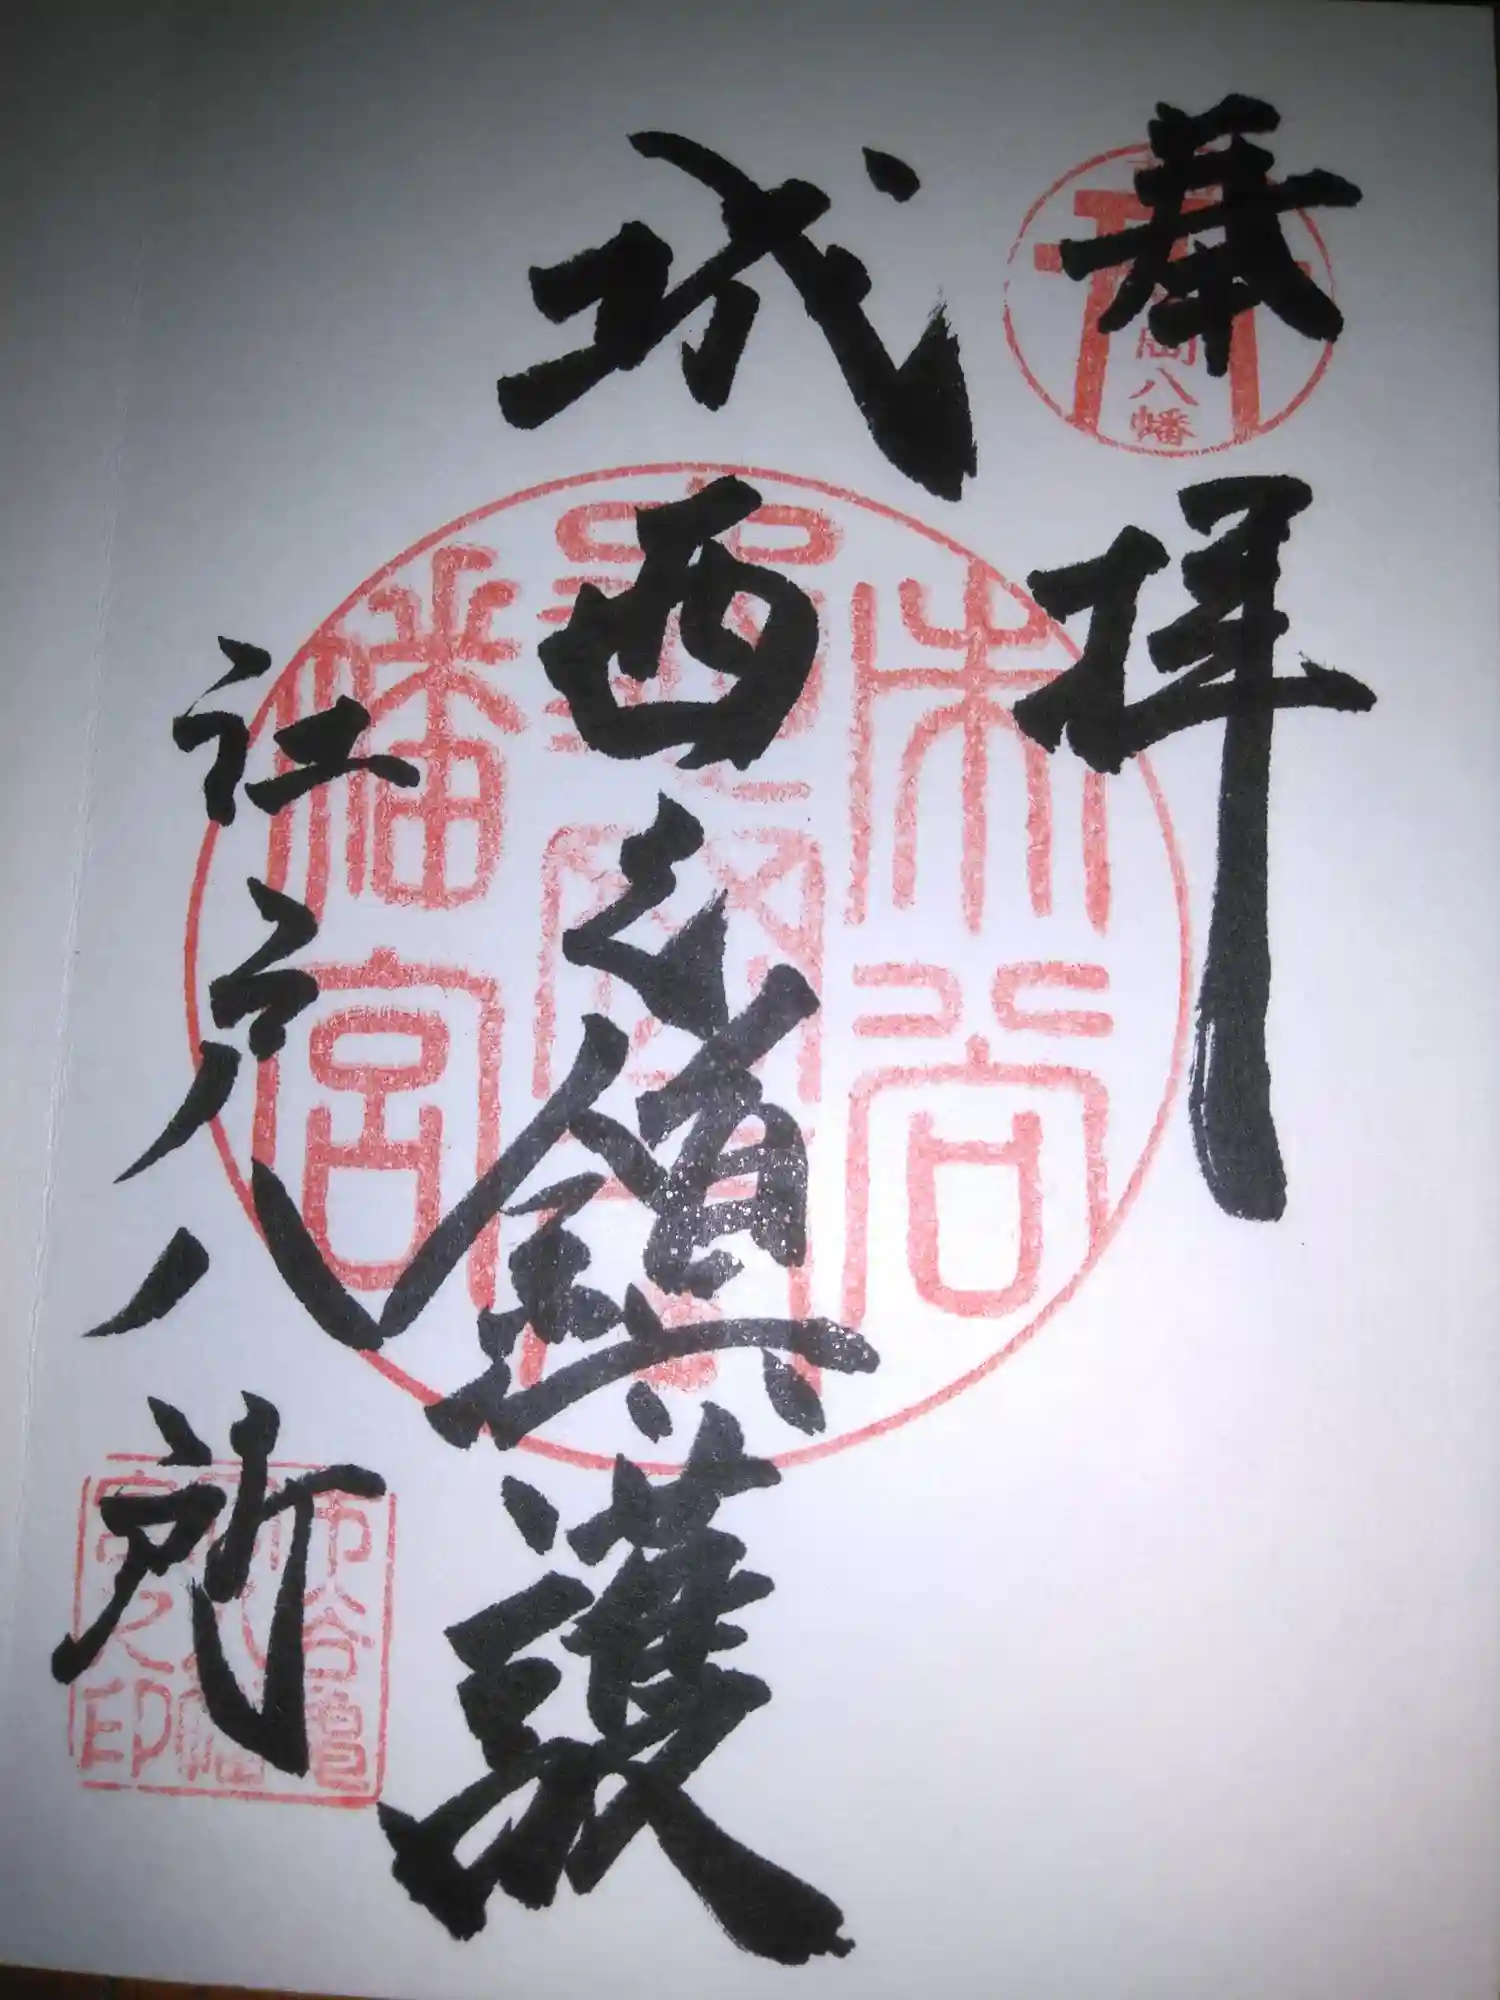 奉拝
岡八幡
城西之鎮護
江戸八所
市谷
龜岡八
幡宮
市谷亀
岡八幡
宮之印